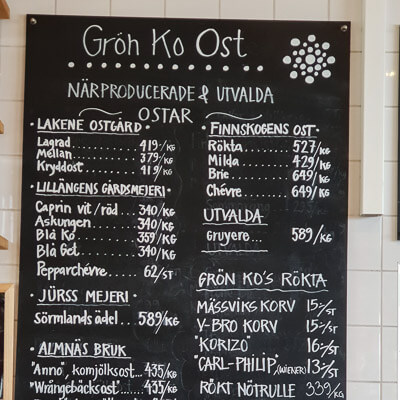 Grön Ko Ost
NÄRPRODUCERADE & UTVALDA
OSTAR
LAKENE OSTGÅRD
Lagrad......... 419:-/KG
Mellan......... 379/KG
Kryddost....... 419/KG
LILLÄNGENS GÅRDSMEJERI
Caprin vit/röd... 340/KG
Askungen....... 340/KG
Blå Ko......... 359/KG
Blå Get........ 340/KG
Pepparchévre..... 62/ST
JÜRSS MEJERI
Sörmlands ädel.. 589/KG
ALMNÄS BRUK
"Anno", komjölksost... 435/KG
"Wrångebäcksost"..... 435/KG
FINNSKOGENS OST
Rökta....... 527/KG
Milda....... 429/KG
Brie........ 649/KG
Chévre...... 649/KG
UTVALDA
Gruyere... 589/KG
GRÖN KO'S RÖKTA
MÅSSVIKS KORV 15:-/ST
V-BRO KORV 15:-/ST
"KORIZO" 16:-/ST
"CARL-PHILIP", (WIENER) 13:-/ST
RÖKT NÖTRULLE 339/KG